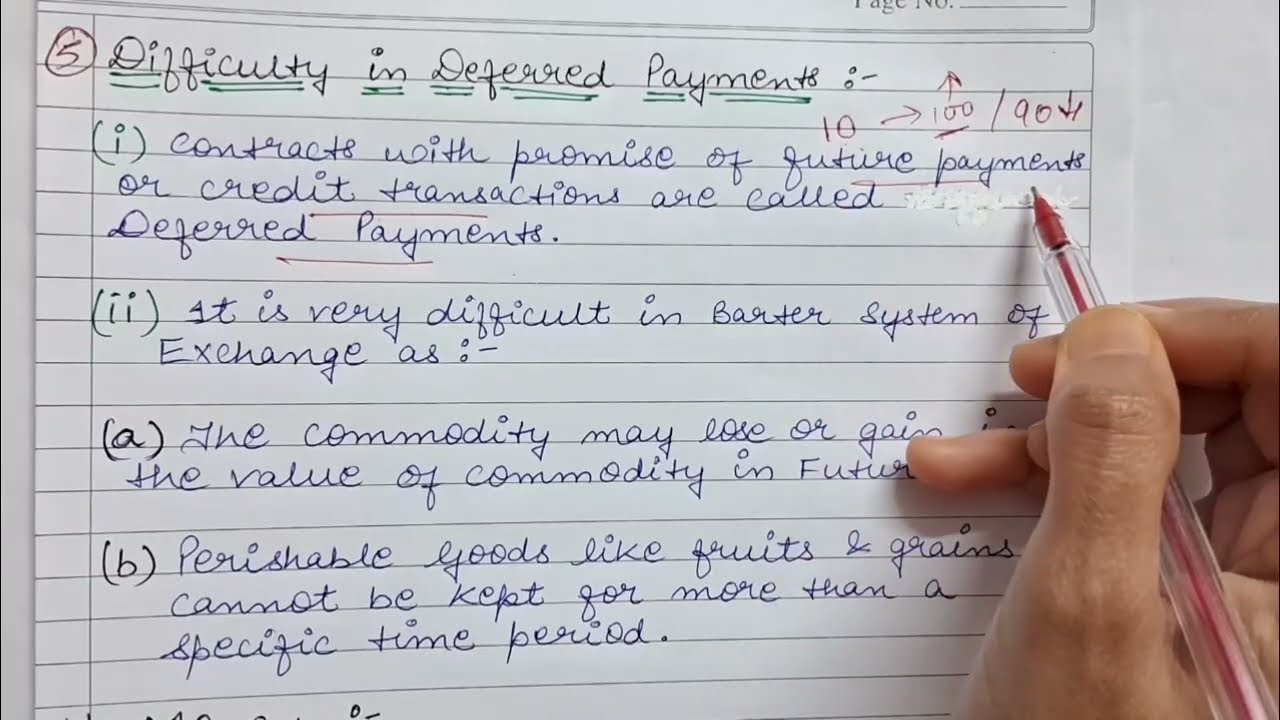 Page No.
⑤ Difficulty in Deferred Payments :-
10 → 100 ↑ / 90 ↓
(i) Contracts with promise of future payments
or credit transactions are called
Deferred Payments.
(ii) It is very difficult in Barter System of
Exchange as :-
(a) The commodity may lose or gain
the value of commodity in
(b) Perishable goods like fruits & grains
cannot be kept for more than a
specific time period.